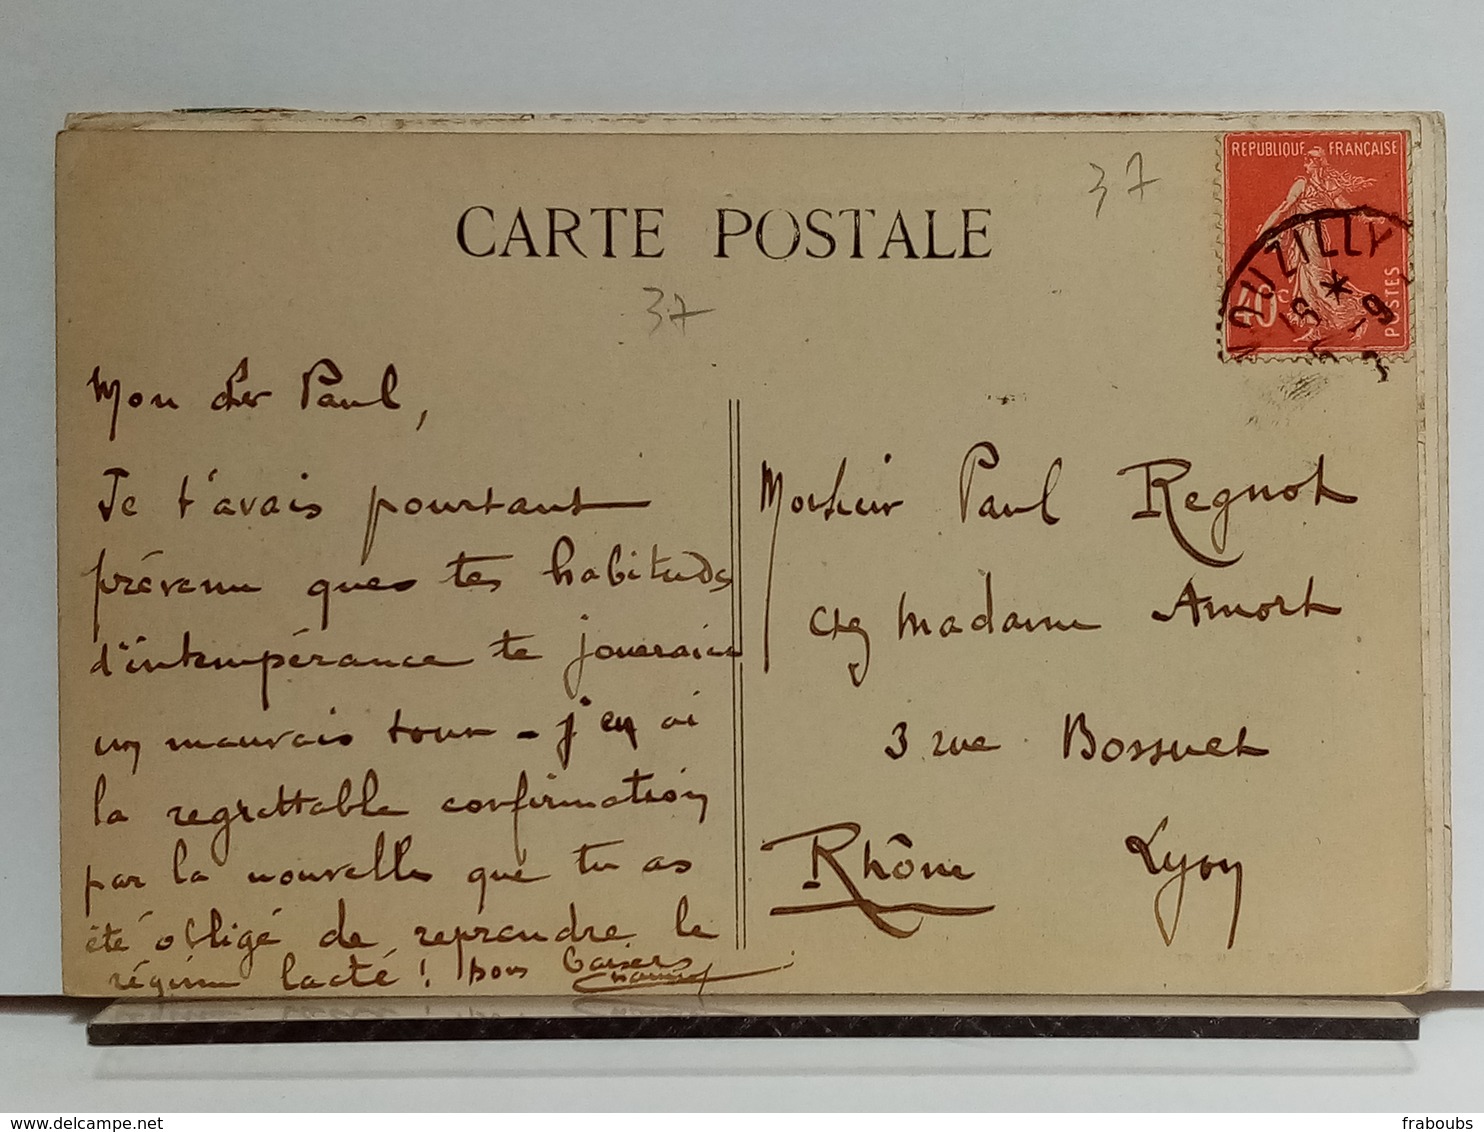 37
CARTE POSTALE
37
REPUBLIQUE FRANÇAISE
40c
POSTES
NOUZILLY
Mon cher Paul,
Je t'avais pourtant
prévenu que tes habitudes
d'intempérance te joueraient
un mauvais tour - j'en ai
la regrettable confirmation
par la nouvelle que tu as
été obligé de reprendre le
régime lacté ! Bons baisers
Monsieur Paul Regnot
chez Madame Amort
3 rue Bossuet
Rhône Lyon
fraboubs